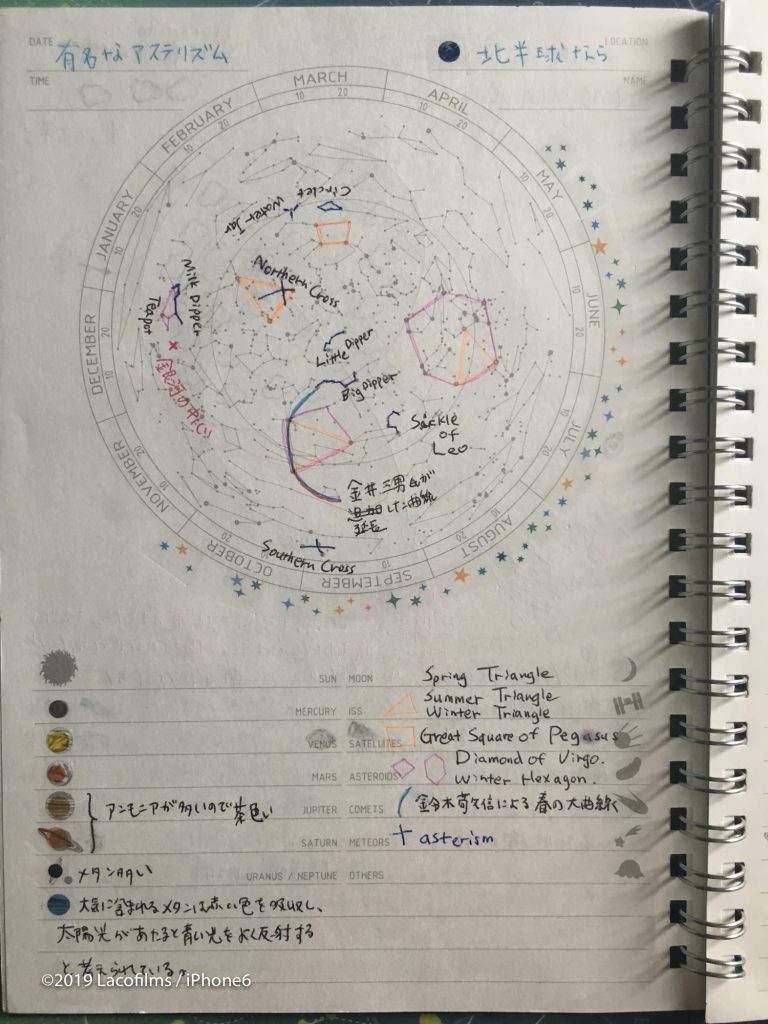 DATE 有名なアステリズム
北半球なら LOCATION
TIME
NAME
MARCH
APRIL
MAY
JUNE
JULY
AUGUST
SEPTEMBER
OCTOBER
NOVEMBER
DECEMBER
JANUARY
FEBRUARY
10 20
Circlet
Water Jar
Northern Cross
Milk Dipper
Teapot
× 銀河の中心
Little Dipper
Big Dipper
Sickle
of
Leo
金井三男氏が
追加した曲線
延長
Southern Cross
SUN MOON Spring Triangle
Summer Triangle
MERCURY ISS Winter Triangle
VENUS SATELLITES Great Square of Pegasus
Diamond of Virgo.
MARS ASTEROIDS Winter Hexagon.
アンモニアが多いので茶色い
JUPITER COMETS 鈴木敬信による春の大曲線
SATURN METEORS asterism
メタン多い URANUS / NEPTUNE OTHERS
大気に含まれるメタンは赤い色を吸収し、
太陽光があたると青い光をよく反射する
と考えられている。
©2019 Lacofilms / iPhone6